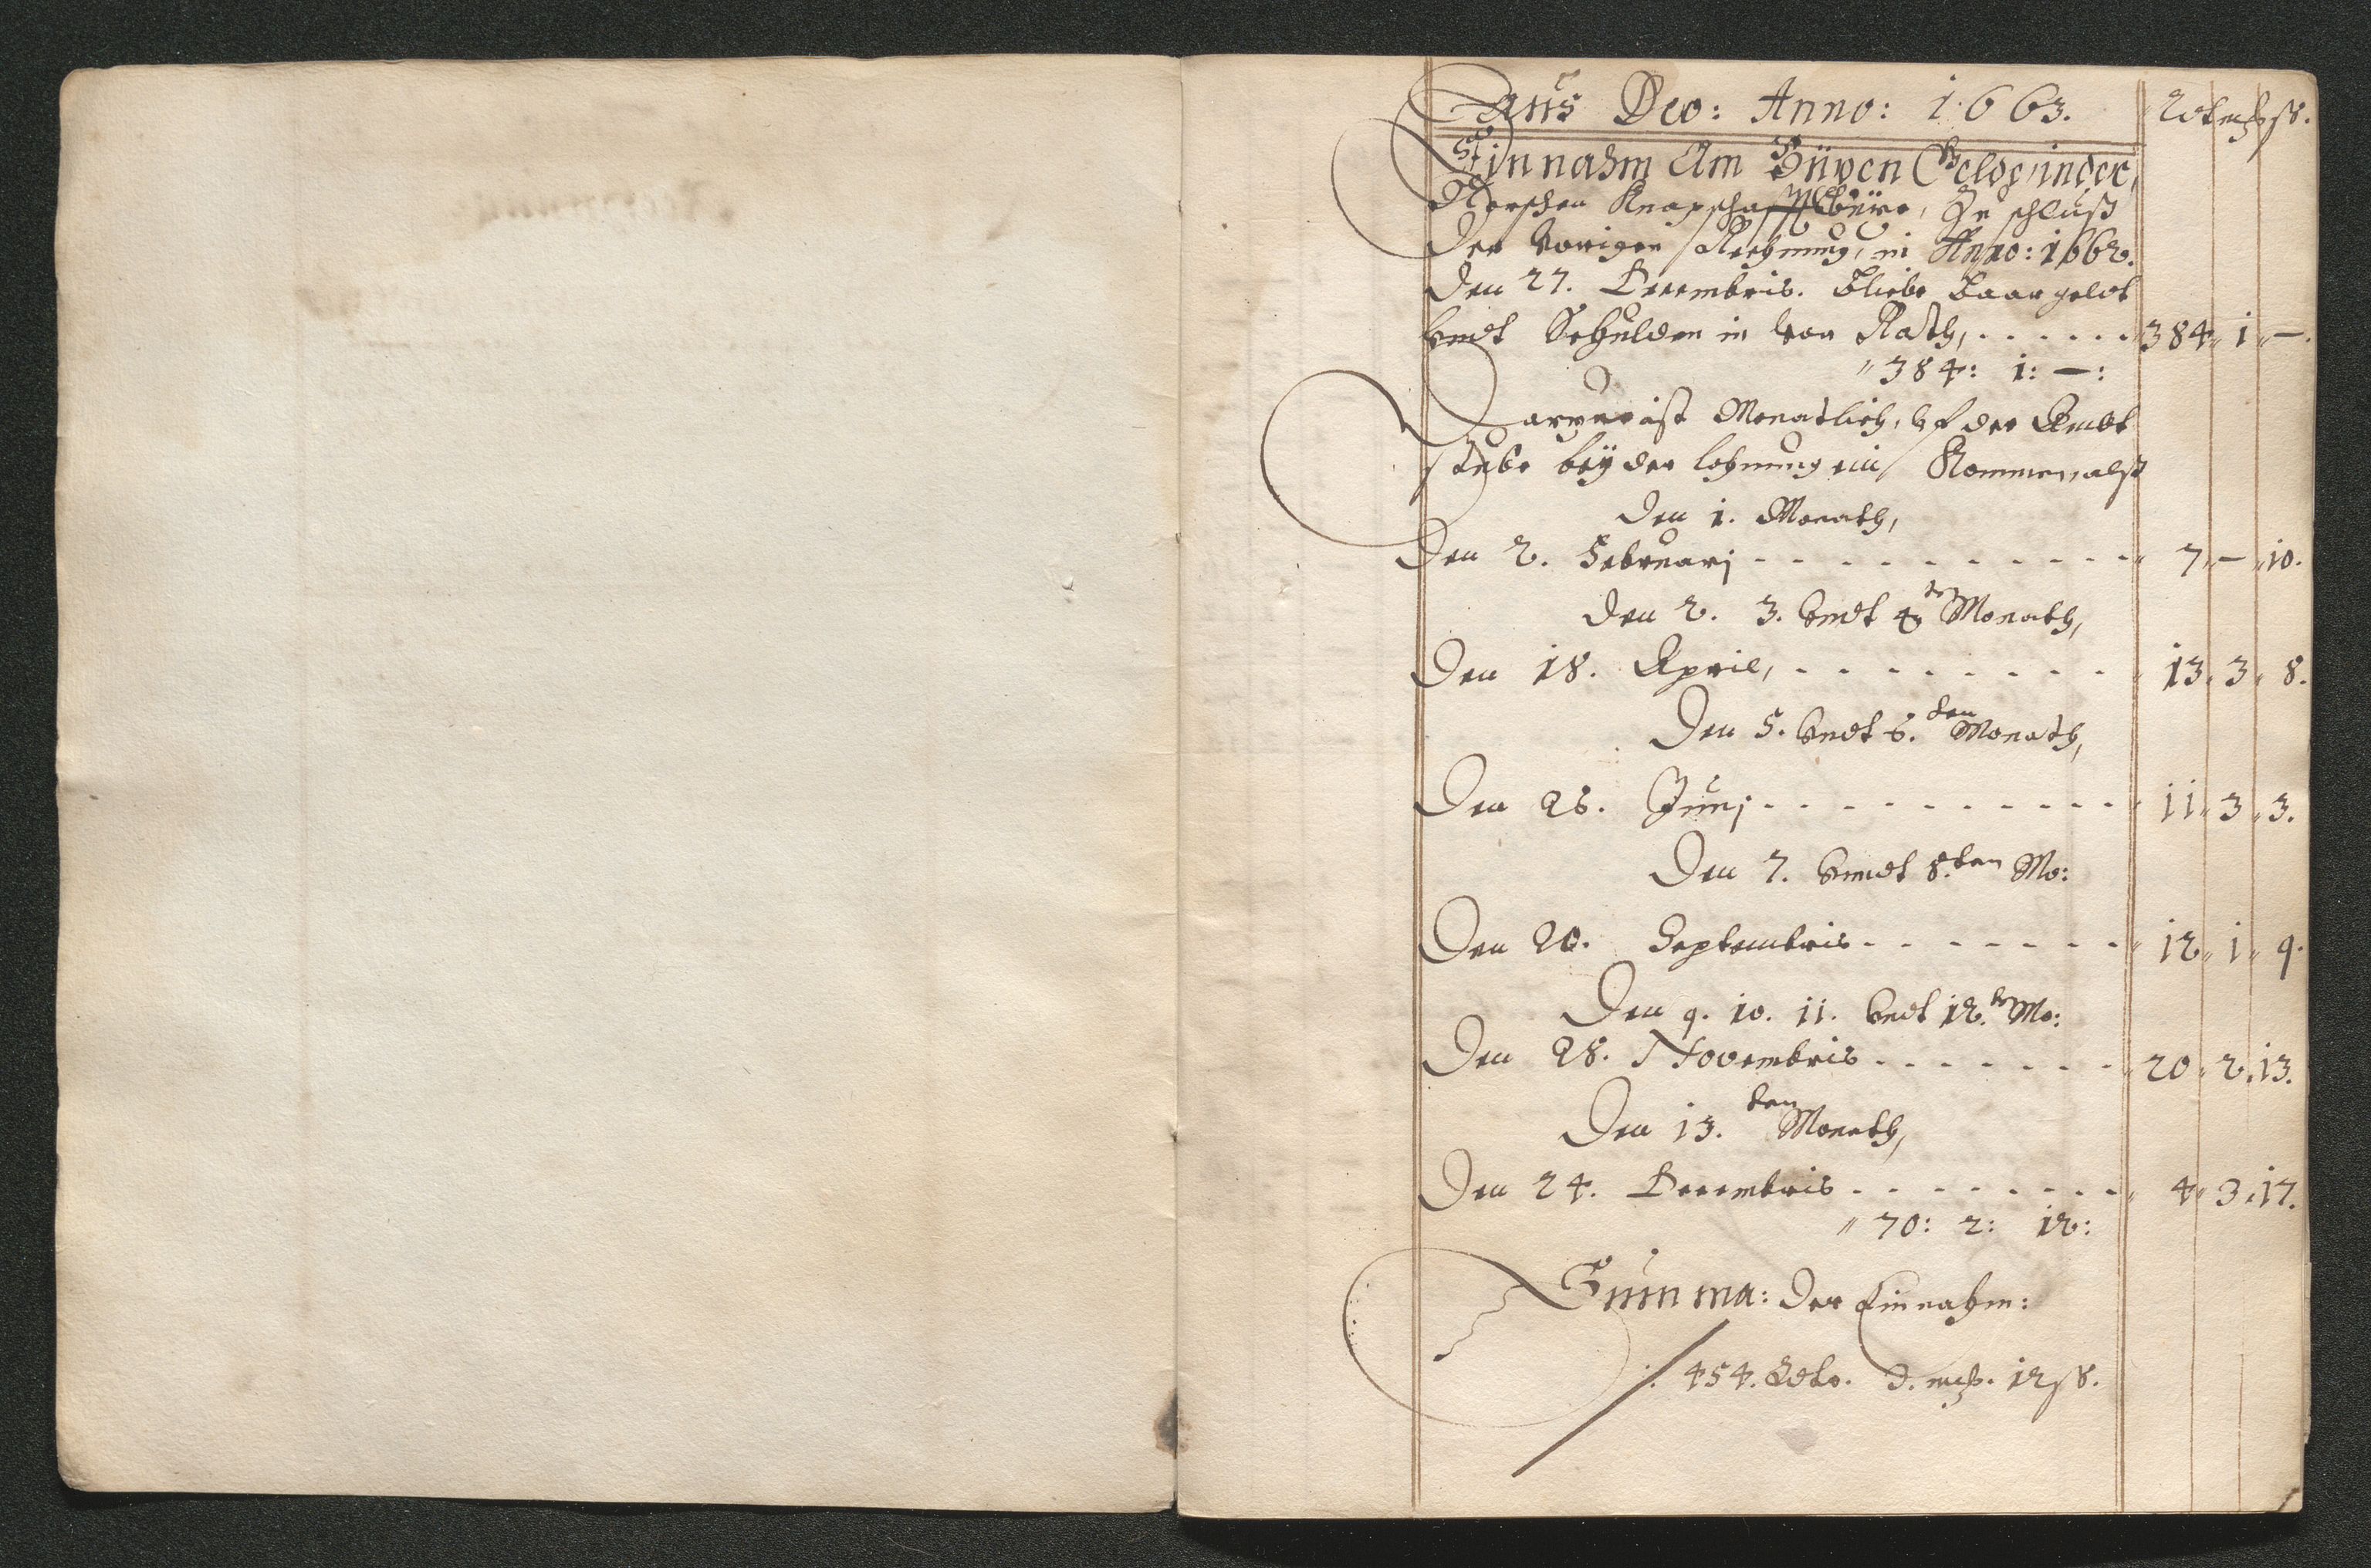 Laus Deo: Anno: 1663.
Einnahm Am Büxen Geldt, in der
Knapschafft Büxe, Zu schluß
der vorigen Rechnung, in Anno: 1662.
den 27. Decembris. Bliebe Baar geldt
Vndt Schulden in vor Rath, . . . . . . 384 " 1 " —.
" 384: 1: —:
ist Monatlich, vf der Ambt
stube beÿ der lohnung ein Kommen, alß
den 1. Monath,
Den 2. Februarj - - - - - - - - - - " 7 " — " 10.
den 2. 3. Vndt 4 ten Monath,
Den 18. April, - - - - - - - - - " 13 " 3 " 8.
Den 5. Vndt 6. ten Monath,
Den 26. Junj - - - - - - - - - - - 11 " 3 " 3.
Den 7. Vnndt 8. ten Mo:
Den 20. Septembris - - - - - - - " 12 " 1 " 9.
Den 9. 10. 11. Vndt 12. ten Mo:
Den 28. Novembris - - - - - - - " 20 " 2 " 13.
Den 13. ten Monath,
Den 24. Decembris - - - - - - - - " 4 " 3 " 17.
" 70: 2: 12:
Summa: der Einnahm:
454. 3. 12